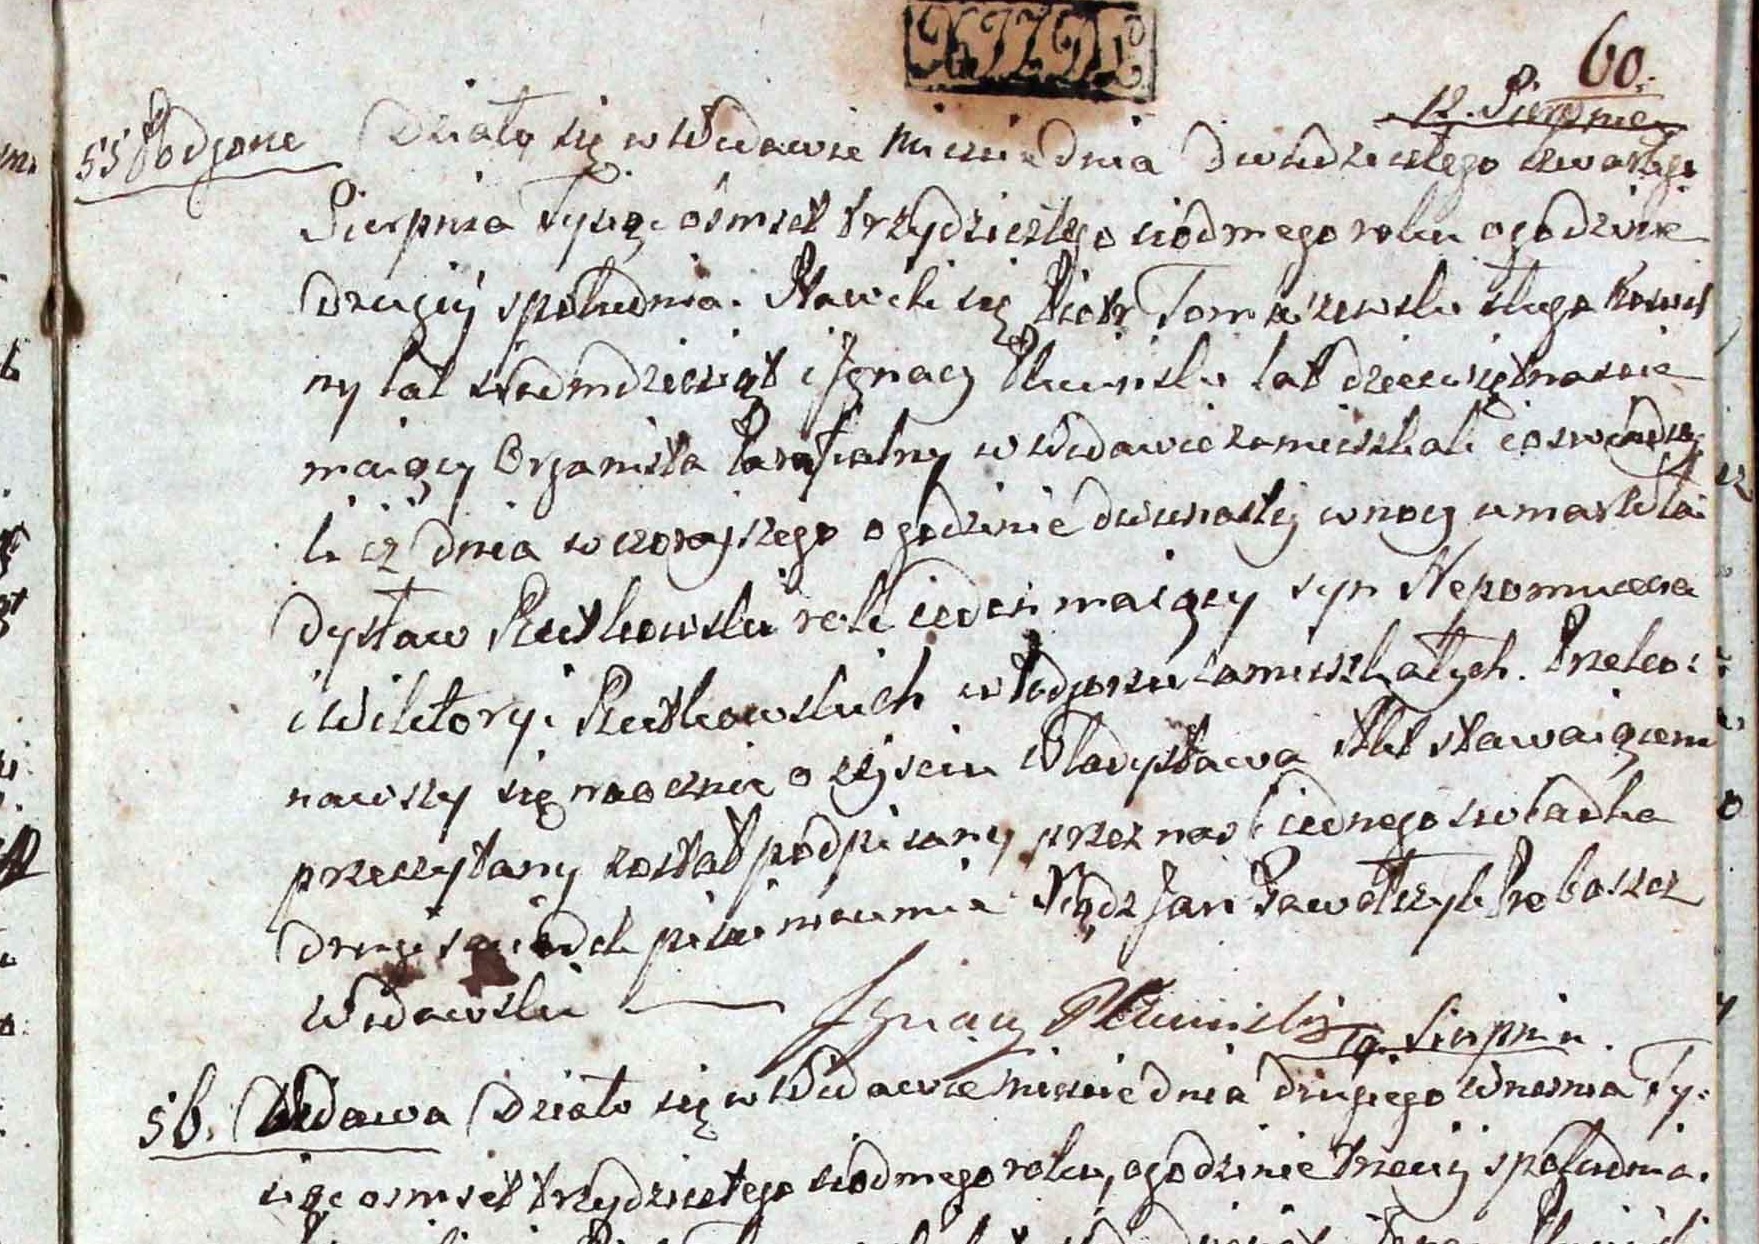 60.
12. Sierpnia
55 Podgorze Działo się w Widawie mieście dnia dwudziestego czwartego
Sierpnia Tysiąc ośmset trzydziestego siodmego roku o godzinie
drugiey z południa. Stawili się Piotr Tomaszewski sługa Kosciel
ny lat siedmdziesiąt i Ignacy Pluciński lat dziewiętnascie
maiący Organista Parafialny w Widawie zamieszkali i oswiadczy
li iż dnia wczorayszego o godzinie dwunastey w nocy umarł Wła:
dysław Rutkowski rok ieden maiący syn Nepomucena
i Wiktoryi Rutkowskich w Podgorzu zamieszkałych. Przeko:
nawszy się naocznie o zejsciu Władysława Akt stawaiącem
przeczytany został podpisany przez nas i iednego swiadka
drugi swiadek pisać nieumie Xiądz Jan Pawełczyk Proboszcz
Widawski
Ignacy Pluciński
19. Sierpnia
56. Widawa Działo się w Widawie mieście dnia drugiego Wrzesnia Ty:
siąc osmset trzydziestego siodmego roku, o godzinie trzeciey z południa.